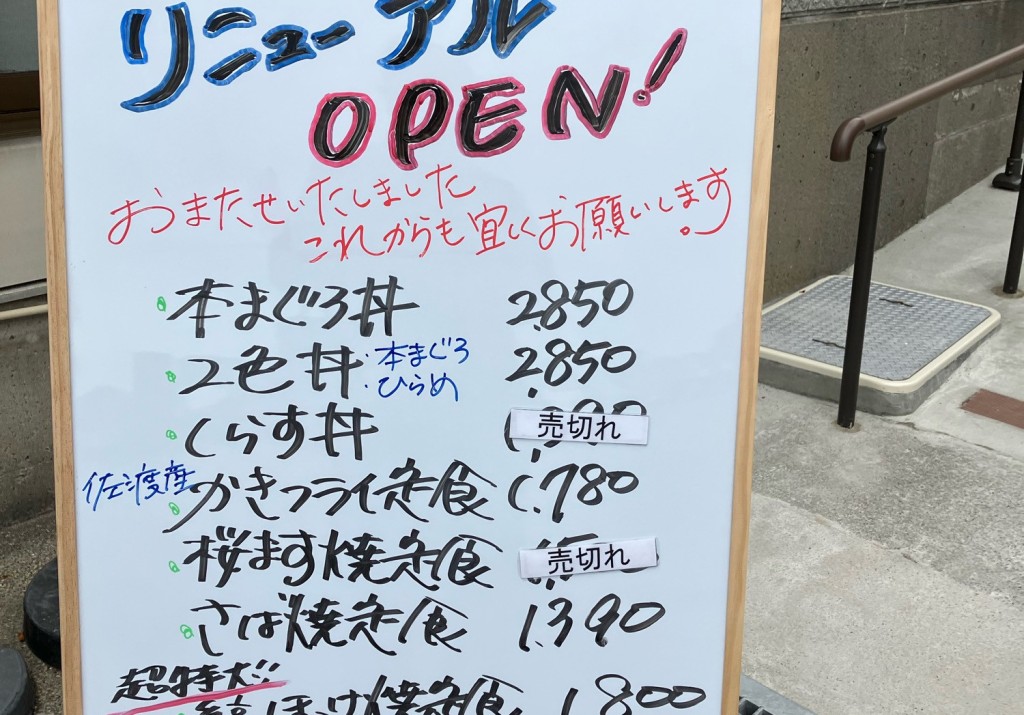 リニューアル
OPEN!
おまたせいたしました
これからも宜しくお願いします。
本まぐろ丼 2,850
2色丼 ・本まぐろ ・ひらめ 2,850
くらす丼 売切れ
佐渡産 かきフライ定食 1,780
桜ます焼定食 売切れ
さば焼定食 1,390
超特大!!
ほっけ焼定食 1,800